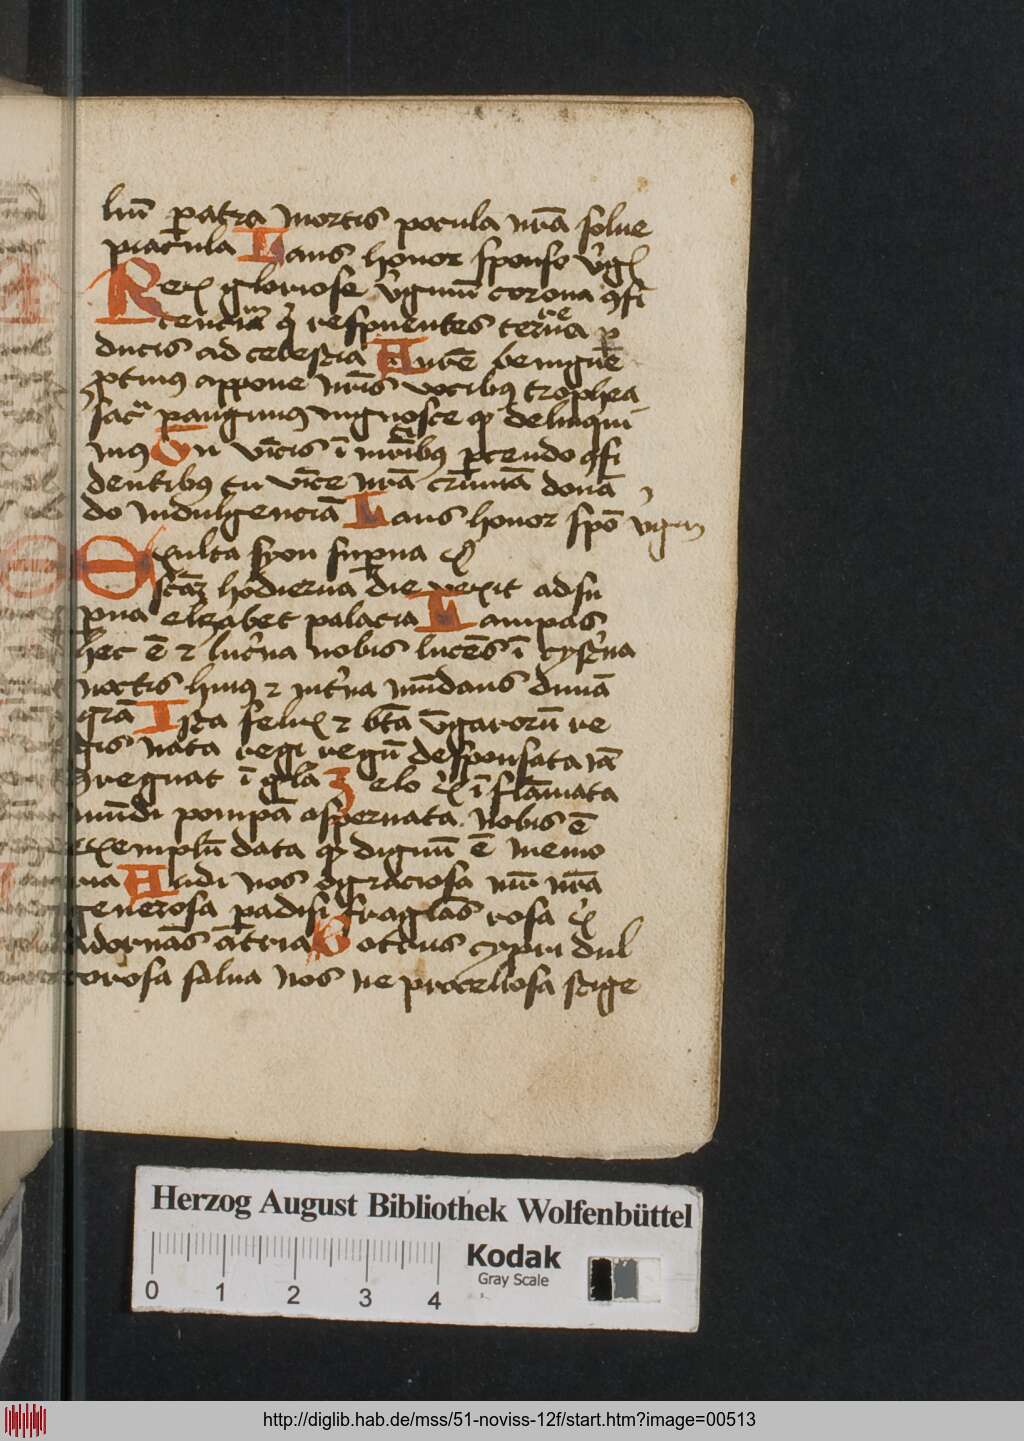 liu͞ patra mortis pocula nr̄a solue
piacula Laus honor sponse v̓g̓
Rex gloriose v̓ginu͞ corona ꝯfi
respuentes
ducis ad celestia Aurē benignē
ꝓtinꝰ appone nr̄is vocibꝰ trophea
sacᷓ pangimꝰ ignosce qͦ delinqui
mꝰ En vīcis ī mr̄ibꝰ ꝑcendo ꝯfi
dentibꝰ tu vīce nr̄a crīmiā donā
do indulgenciā Laus honor spō v̓gin
Exulta syon supna
hodierna die vexit ad su
ꝑna elizabet palacia Lampas
hec ē ⁊ luc̓na nobis lucēs ī cyst̓na
noctis huiꝰ ⁊ int̓na mūdans diuīa
gr̄a Ista felix ⁊ bt̄a vngarorū re
gis nata regi regū desponsata iā
ꝯregnat ī gl̄a Zelo ī flāmata
mūdi pompā aspernata nobis ē
exemplū data qͦ dignū ē memo
Audi nos o graciosa nr̄a
generosa padisi fraglās rosa
adornās ātria Botrus cypri dul
corosa salua nos ne procellosa stige
Herzog August Bibliothek Wolfenbüttel
Kodak
Gray Scale
0 1 2 3 4
http://diglib.hab.de/mss/51-noviss-12f/start.htm?image=00513